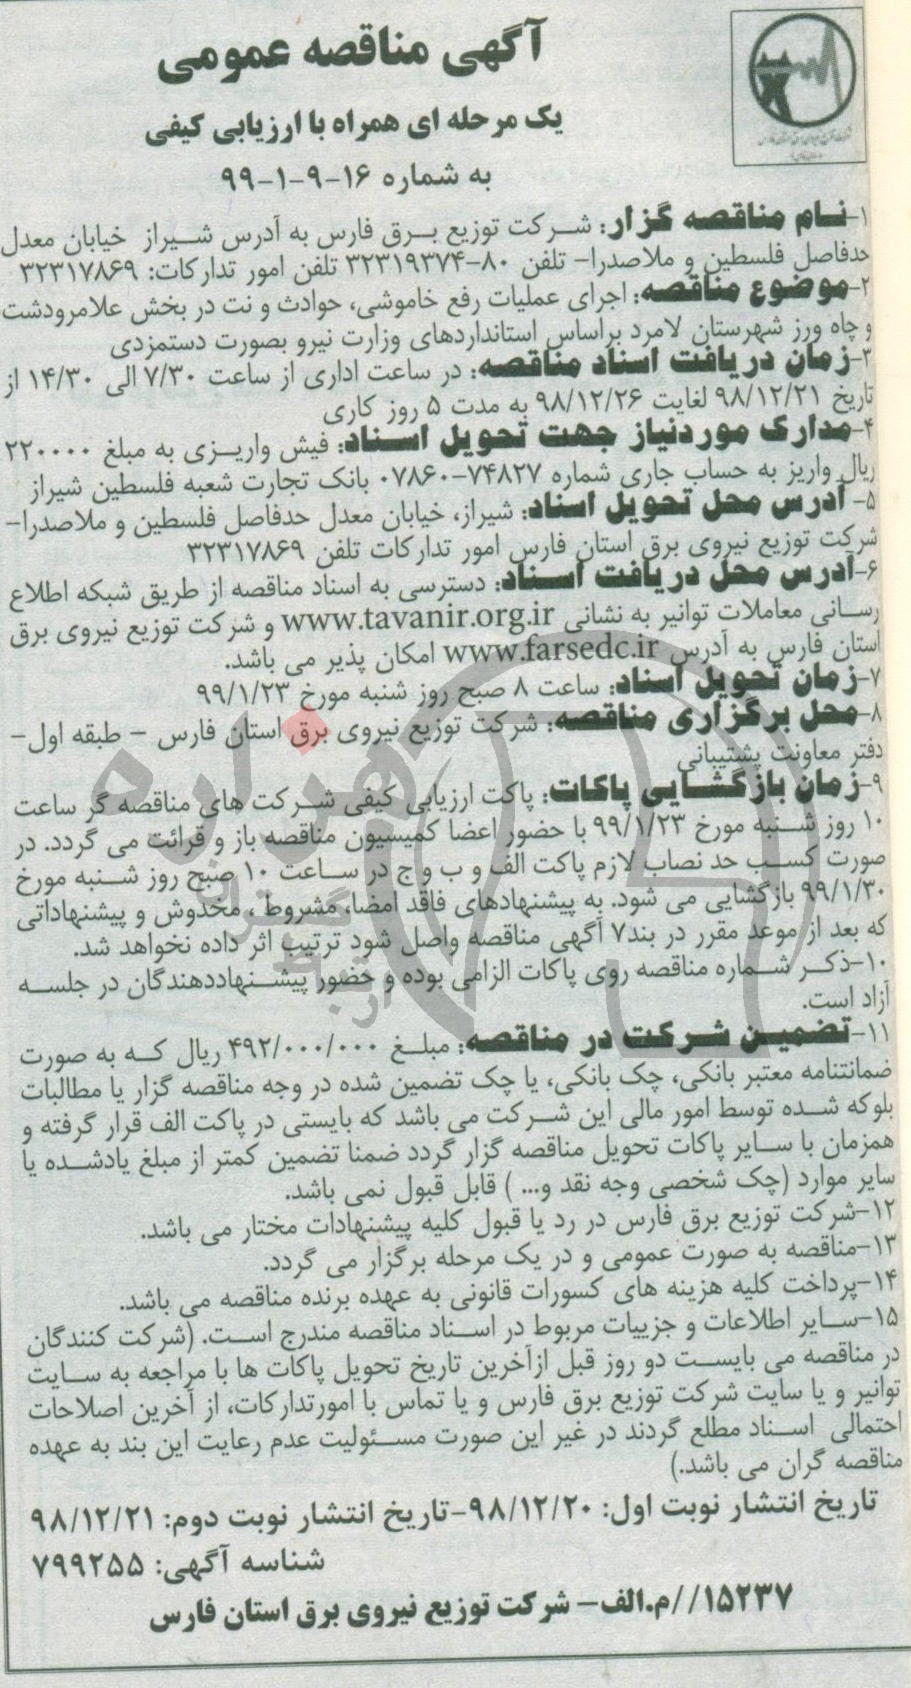 آگهی مناقصه عمومی
یک مرحله ای همراه با ارزیابی کیفی
به شماره ۱۶-۹-۱-۹۹
۱-نام مناقصه گزار: شرکت توزیع برق فارس به آدرس شیراز خیابان معدل
حدفاصل فلسطین و ملاصدرا- تلفن ۸۰-۳۲۳۱۹۳۷۴ تلفن امور تدارکات: ۳۲۳۱۷۸۶۹
۲-موضوع مناقصه: اجرای عملیات رفع خاموشی، حوادث و نت در بخش علامرودشت
و چاه ورز شهرستان لامرد براساس استانداردهای وزارت نیرو بصورت دستمزدی
۳-زمان دریافت اسناد مناقصه: در ساعت اداری از ساعت ۷/۳۰ الی ۱۴/۳۰ از
تاریخ ۹۸/۱۲/۲۱ لغایت ۹۸/۱۲/۲۶ به مدت ۵ روز کاری
۴-مدارک موردنیاز جهت تحویل اسناد: فیش واریزی به مبلغ ۲۲۰۰۰۰
ریال واریز به حساب جاری شماره ۷۴۸۲۷-۰۷۸۶۰ بانک تجارت شعبه فلسطین شیراز
۵- آدرس محل تحویل اسناد: شیراز، خیابان معدل حدفاصل فلسطین و ملاصدرا-
شرکت توزیع نیروی برق استان فارس امور تدارکات تلفن ۳۲۳۱۷۸۶۹
۶-آدرس محل دریافت اسناد: دسترسی به اسناد مناقصه از طریق شبکه اطلاع
رسانی معاملات توانیر به نشانی www.tavanir.org.ir و شرکت توزیع نیروی برق
استان فارس به آدرس www.farsedc.ir امکان پذیر می باشد.
۷-زمان تحویل اسناد: ساعت ۸ صبح روز شنبه مورخ ۹۹/۱/۲۳
۸-محل برگزاری مناقصه: شرکت توزیع نیروی برق استان فارس - طبقه اول-
دفتر معاونت پشتیبانی
۹-زمان بازگشایی پاکات: پاکت ارزیابی کیفی شرکت های مناقصه گر ساعت
۱۰ روز شنبه مورخ ۹۹/۱/۲۳ با حضور اعضا کمیسیون مناقصه باز و قرائت می گردد. در
صورت کسب حد نصاب لازم پاکت الف و ب و ج در ساعت ۱۰ صبح روز شنبه مورخ
۹۹/۱/۳۰ بازگشایی می شود. به پیشنهادهای فاقد امضا، مشروط، مخدوش و پیشنهاداتی
که بعد از موعد مقرر در بند۷ آگهی مناقصه واصل شود ترتیب اثر داده نخواهد شد.
۱۰-ذکر شماره مناقصه روی پاکات الزامی بوده و حضور پیشنهاددهندگان در جلسه
آزاد است.
۱۱-تضمین شرکت در مناقصه: مبلغ ۴۹۲/۰۰۰/۰۰۰ ریال که به صورت
ضمانتنامه معتبر بانکی، چک بانکی، یا چک تضمین شده در وجه مناقصه گزار یا مطالبات
بلوکه شده توسط امور مالی این شرکت می باشد که بایستی در پاکت الف قرار گرفته و
همزمان با سایر پاکات تحویل مناقصه گزار گردد ضمنا تضمین کمتر از مبلغ یادشده یا
سایر موارد (چک شخصی وجه نقد و... ) قابل قبول نمی باشد.
۱۲-شرکت توزیع برق فارس در رد یا قبول کلیه پیشنهادات مختار می باشد.
۱۳-مناقصه به صورت عمومی و در یک مرحله برگزار می گردد.
۱۴-پرداخت کلیه هزینه های کسورات قانونی به عهده برنده مناقصه می باشد.
۱۵-سایر اطلاعات و جزییات مربوط در اسناد مناقصه مندرج است. (شرکت کنندگان
در مناقصه می بایست دو روز قبل ازآخرین تاریخ تحویل پاکات ها با مراجعه به سایت
توانیر و یا سایت شرکت توزیع برق فارس و یا تماس با امورتدارکات، از آخرین اصلاحات
احتمالی اسناد مطلع گردند در غیر این صورت مسئولیت عدم رعایت این بند به عهده
مناقصه گران می باشد.)
تاریخ انتشار نوبت اول: ۹۸/۱۲/۲۰-تاریخ انتشار نوبت دوم: ۹۸/۱۲/۲۱
شناسه آگهی: ۷۹۹۲۵۵
۱۵۲۳۷//م.الف- شرکت توزیع نیروی برق استان فارس